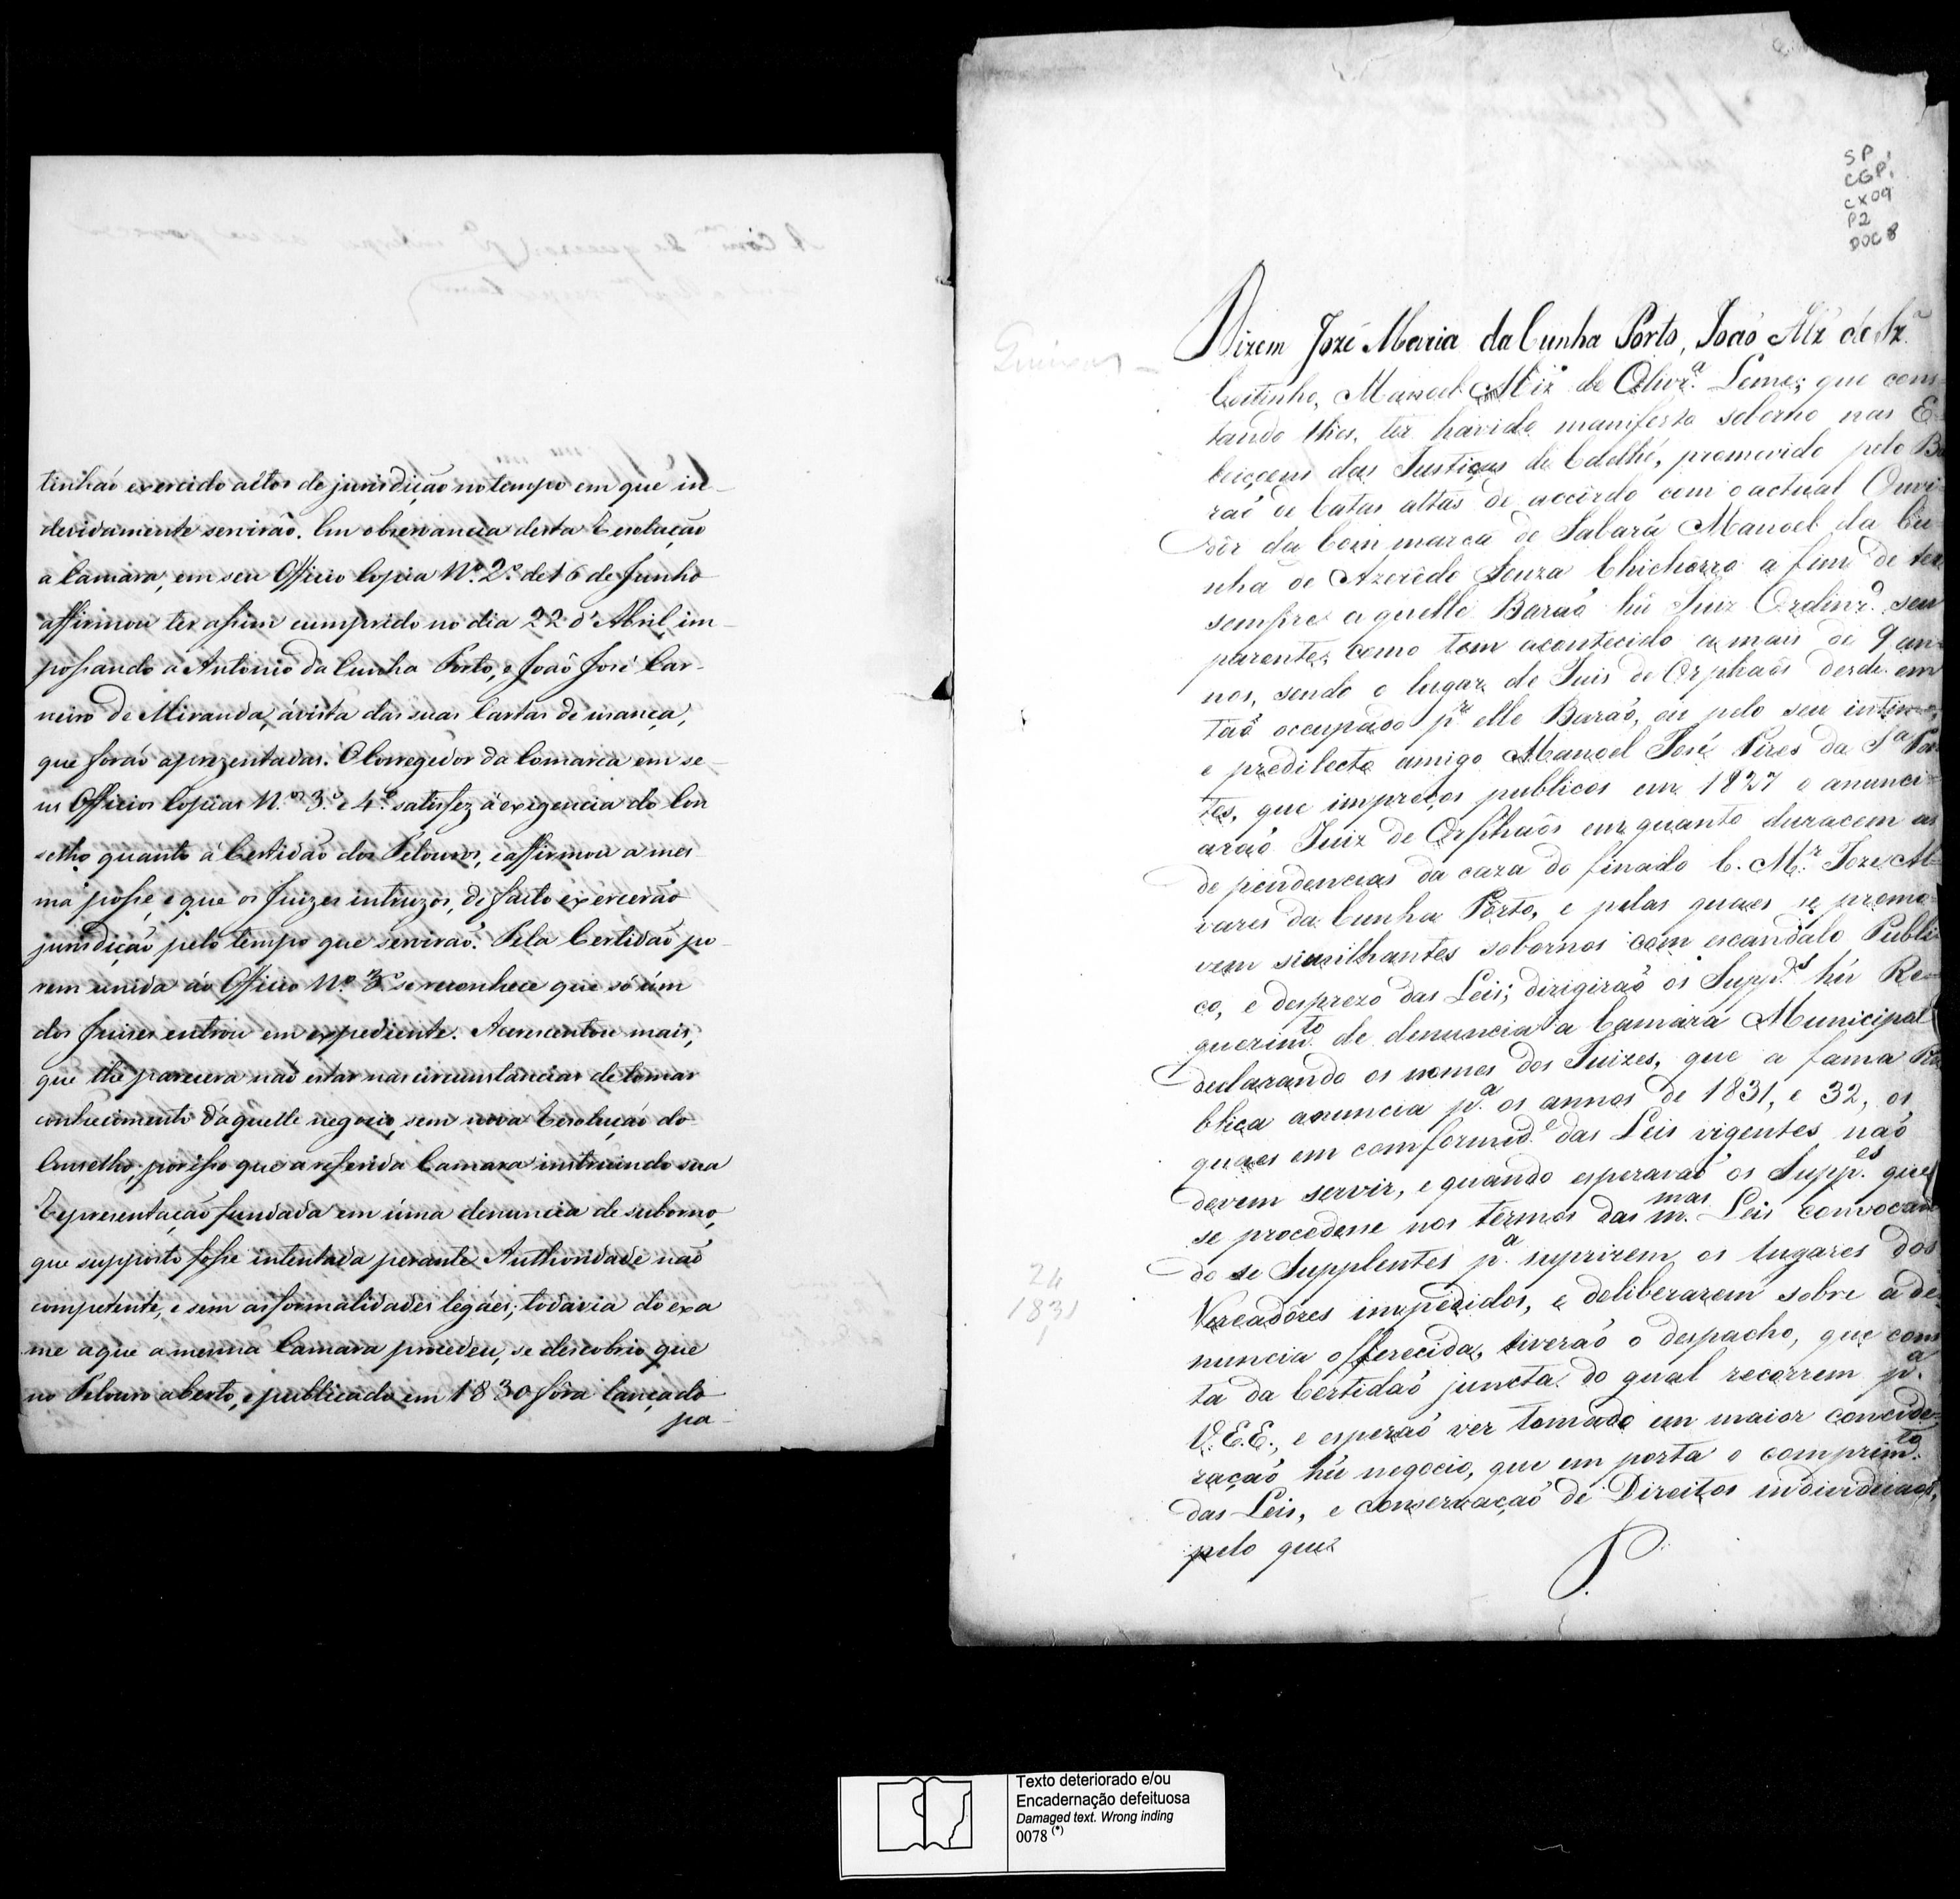 tinhão exercido actos de jurisdição no tempo em que in-
devidamente servirão. Em observancia desta Resolução
a Camara, em seu Officio Copia Nº. 2º de 16 de Junho
affirmou ter assim cumprido no dia 22 d'Abril, im-
possando a Antonio da Cunha Porto, e João José Car-
neiro de Miranda, á vista das suas Cartas de usança,
que forão aprezentadas. O Corregedor da Comarca em se-
us Officios Copias N.os 3º e 4º satisfez á exigencia do Con
selho quanto á Certidão dos Pelouros, e affirmou a mes
ma posse, e que os Juizes intruzos, de facto exercerão
jurisdição pelo tempo que servirão. Pela Certidão po-
rem unida ao Officio Nº. 3º se reconhece que só úm
dos Juises entrou em expediente. Acrescentou mais,
que lhe parecera não estar nas circunstancias de tomar
conhecimento d'aquelle negocio, sem nova Resolução do
Conselho, por isso que a referida Camara instruindo sua
Representação fundada em úma denuncia de suborno,
que supposto fosse intentada perante Authoridade não
competente, e sem as formalidades legáes; todavia do exa
me a que a mesma Camara procedeu, se descobrio que
no Pelouro aberto, e publicado em 1830 fôra lançado
pa-
SP
CGP1
CX09
P2
DOC 8
Dizem Jozé Maria da Cunha Porto, João Alz' de Sz.ª
Coitinho, Manoel Miz' de Olivr.ª Leme; que cons-
tando lhes, ter havido manifesto soborno nas E-
leiçoens das Justiças de Caethé, promovido pelo Ba
rão de Catas altas de accôrdo com o actual Ouvi-
dôr da Commarca de Sabará Manoel da Cu-
nha de Azerêdo Souza Chichôrro a fim de ter
sempre aquelle Barão hũ Juiz Ordinr.º seu
parente, como tem acontecido a mais de 9 an-
nos, sendo o lugar de Juis de Orphaõs desde en
taõ occupado p.r elle Barão, ou pelo seu intimo,
e predilecto amigo Manoel José Pires da S.ª Pon
tes, que impreços publicos em 1827 o anunci-
arão Juiz de Orphaõs emquanto duracem as
dependencias da caza do finado C. M.r Joze Al-
vares da Cunha Porto, e pelas quaes se promo-
vem similhantes sobornos com escandalo Publi
co, e desprezo das Leis; dirigirão os Supp.es hũ Re-
querim.to de denuncia a Camara Municipal
declarando os nomes dos Juizes, que a fama Pu
blica anuncia p.ª os annos de 1831, e 32, os
quaes em comformid.e das Leis vigentes, naõ
devem servir, e quando esperavaõ os Supp.es que
se procedesse nos têrmos das m.mas Leis convocan
do se Supplentes p.ª suprirem os lugares dos
Vereadôres impedidos, e deliberarem sobre a de-
nuncia offerecida, tiverão o despacho, que cons
ta da Certidaõ juncta do qual recorrem p.ª
V.E.E., e esperão ver tomado em maior concide-
raçaõ hũ negocio, que em porta o comprim.to
das Leis, e conservaçaõ de Direitos individuaes,
pelo que
P.
24
1831
Texto deteriorado e/ou
Encadernação defeituosa
Damaged text. Wrong inding
0078 (*)